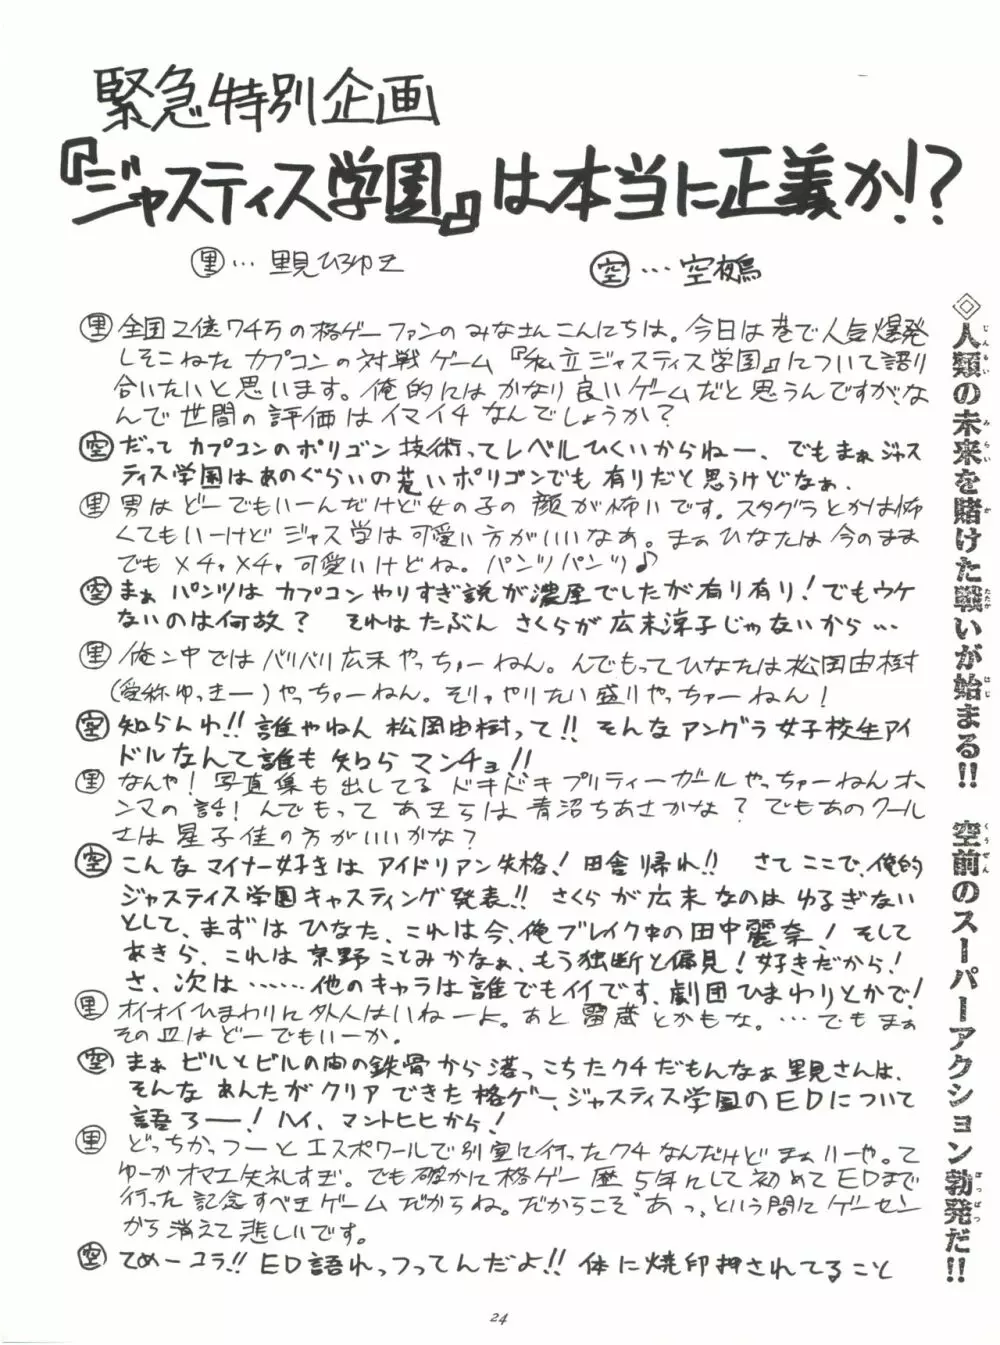 緊急特別企画
『ジャスティス学園』は本当に正義か!?
里…里見ひろゆき
空…空鵺
里 全国2億74万の格ゲーファンのみなさんこんにちは。今日は巷で人気爆発
しそこねた カプコンの対戦ゲーム『私立ジャスティス学園』について語り
合いたいと思います。俺的にはかなり良いゲームだと思うんですが、な
んで世間の評価はイマイチなんでしょうか?
空 だって カプコンのポリゴン技術ってレベルひくいからねー、でもまぁジャス
ティス学園はあのぐらいの荒いポリゴンでも有りだと思うけどなぁ。
里 男はどーでもいーんだけど女の子の顔が怖いです。スタグラとかは怖
くてもいーけど ジャス学は可愛い方がいいなあ。まぁひなたは今のまま
でもメチャメチャ可愛いけどね。パンツパンツ♪
空 まぁ パンツは カプコンやりすぎ説が濃厚でしたが有り有り!でもウケ
ないのは何故? それはたぶん さくらが広末涼子じゃないから…
里 俺ン中ではバリバリ広末やっちゅーねん。んでもってひなたは松岡由樹
(愛称ゆっきー)やっちゅーねん。そりゃやりたい盛りやっちゅーねん!
空 知らんわ!!誰やねん 松岡由樹って!! そんなアングラ女子校生アイ
ドルなんて誰も知らマンチョ!!
里 なんや!写真集も出してる ドキドキ プリティーガールやっちゅーねんホ
ンマの話!んでもって あきらは青沼ちあさかな?でもあのクール
さは星子佳の方がいいかな?
空 こんなマイナー好きは アイドリアン失格!田舎帰れ!! さてここで、俺的
ジャスティス学園キャスティング発表!! さくらが広末なのはゆるぎない
として、まずはひなた、これは今、俺ブレイク中の田中麗奈!そして
あきら、これは京野ことみかなぁ、もう独断と偏見!好きだから!
さ、次は……他のキャラは誰でもイイです、劇団ひまわりとかで!
里 オイオイひまわりに外人はいねーよ。あと雷蔵とかもな。…でもまぁ
その辺はどーでもいーか。
空 まぁ ビルとビルの間の鉄骨から落っこちたクチだもんなぁ里見さんは、
そんな あんたがクリアできた格ゲー、ジャスティス学園のEDについて
語ろー!ハイ、マントヒヒから!
里 どっちかっつーとエスポワールで別室に行ったクチなんだけどまぁいーや。て
ゆーかオマエ失礼すぎ。でも確かに格ゲー歴5年にして初めてEDまで
行った記念すべきゲームだからね。だからこそ“あっ、という間にゲーセン
から消えて悲しいです。
空 てめーコラ!!ED語れっつってんだよ!!体に焼印押されてること
◇人類の未来を賭けた戦いが始まる!! 空前のスーパーアクション勃発だ!!
じんるい みらい か たたか はじ くうぜん ぼっぱつ
24